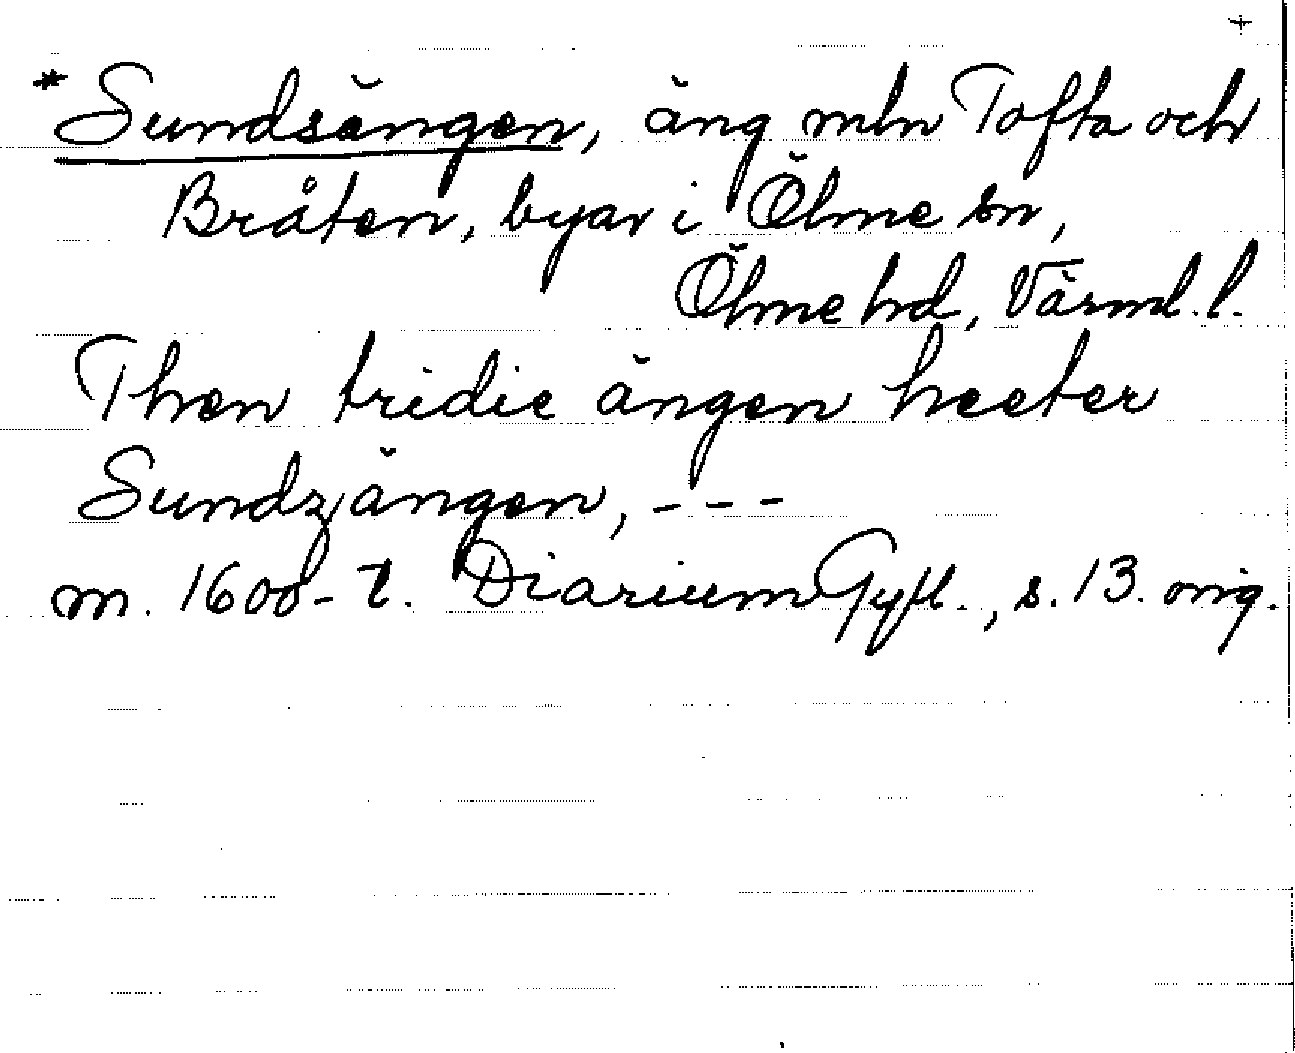 +
* Sundsängen, äng mln Tofta och
Bråten, byar i Ölme sn,
Ölme hd, Värml. l.
Then tridie ängen heeter
Sundzängen, - - -
m. 1600-t. Diarium Gyll., s. 13. orig.